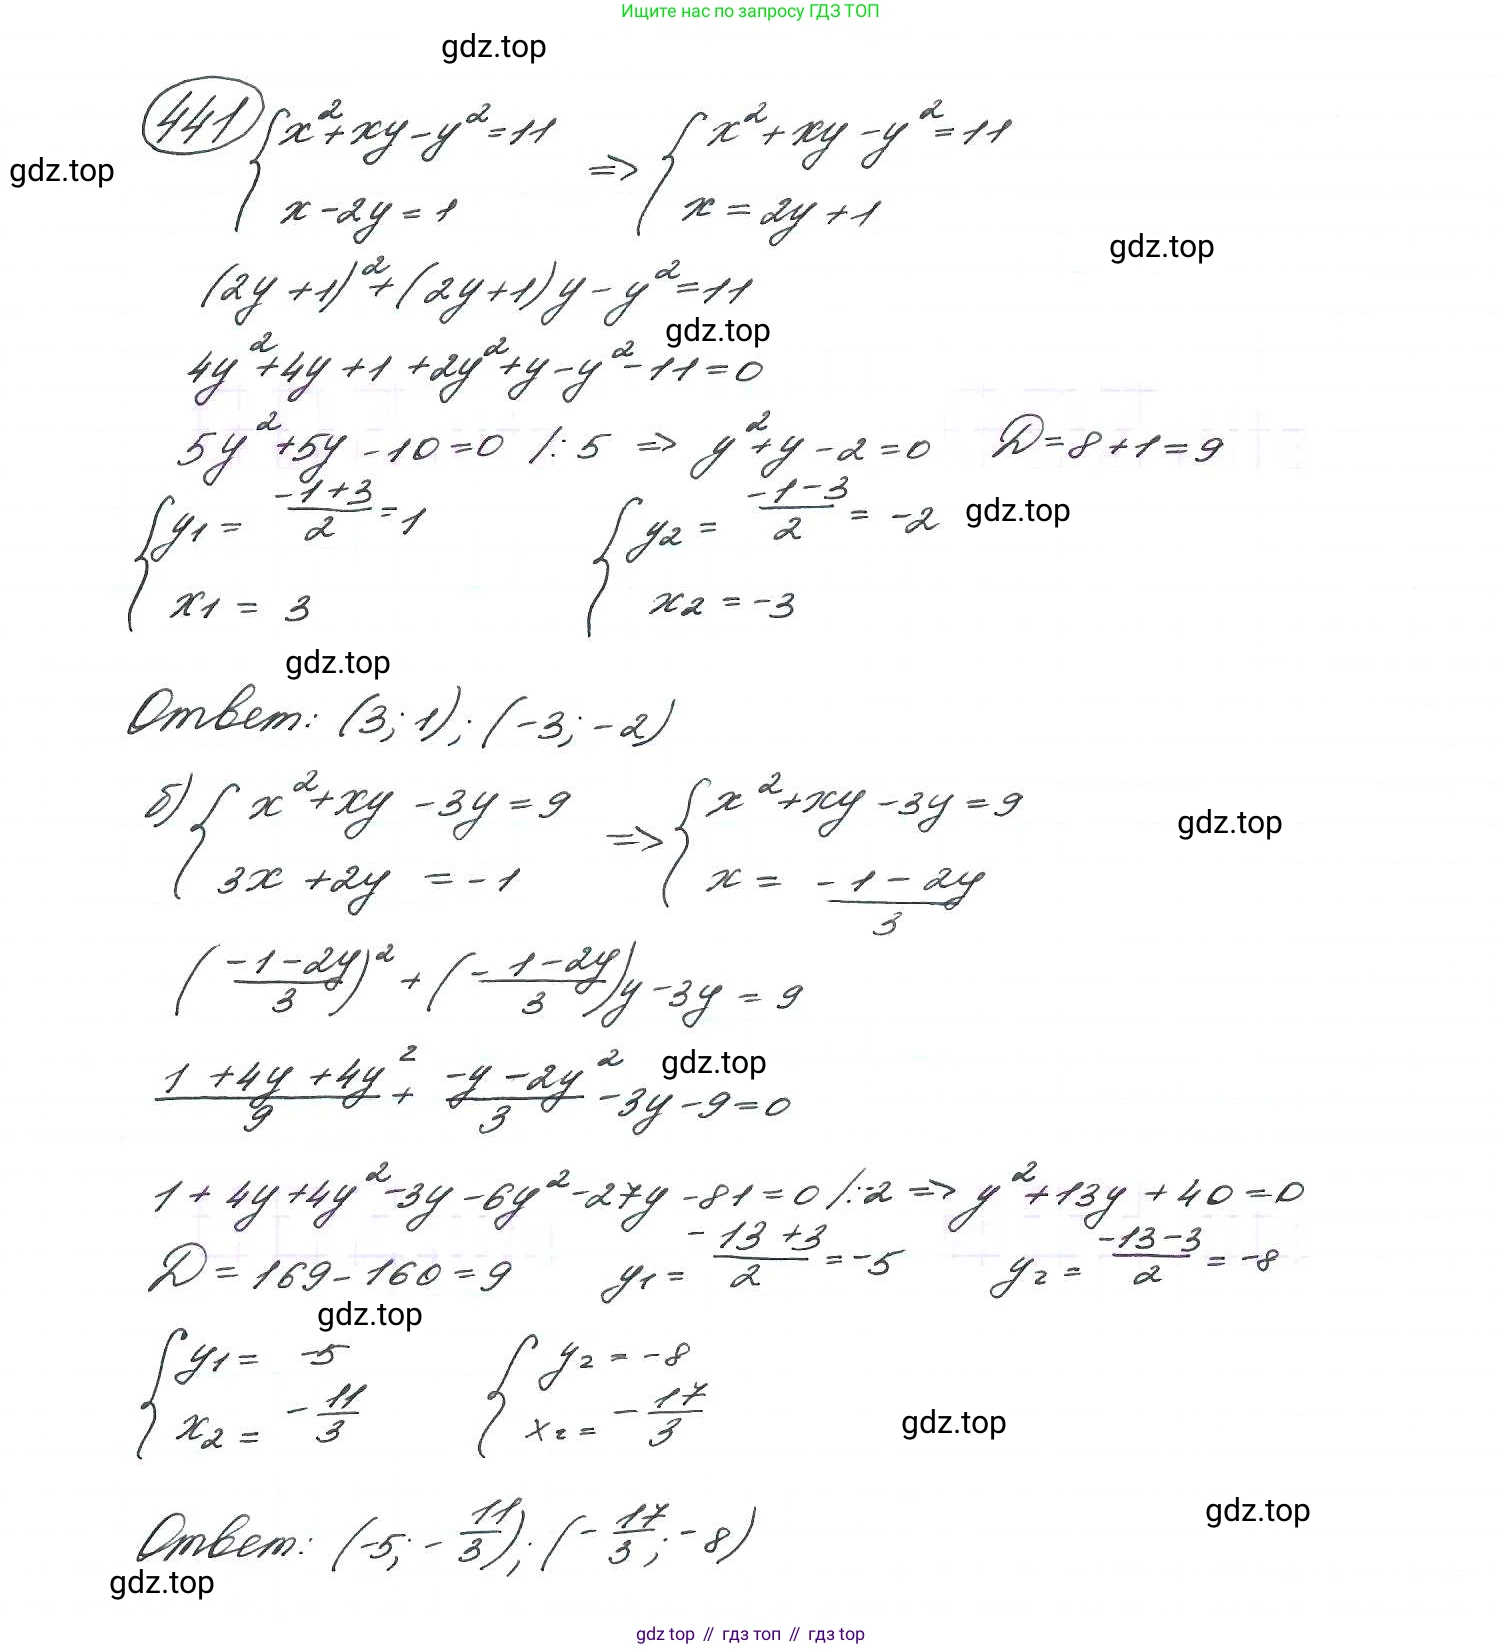 Ищите нас по запросу ГДЗ ТОП
gdz.top
441 { x²+xy-y²=11 => { x²+xy-y²=11
gdz.top
x-2y=1 x=2y+1
gdz.top
(2y+1)²+(2y+1)y-y²=11
gdz.top
4y²+4y+1+2y²+y-y²-11=0
5y²+5y-10=0 /:5 => y²+y-2=0 D=8+1=9
{ y1= (-1+3)/2 =1 { y2= (-1-3)/2 = -2
gdz.top
x1= 3 x2=-3
gdz.top
Ответ: (3; 1); (-3; -2)
б) { x²+xy-3y=9 => { x²+xy-3y=9
gdz.top
3x+2y=-1 x= (-1-2y)/3
((-1-2y)/3)²+((-1-2y)/3)y-3y=9
gdz.top
(1+4y+4y²)/9 + (-y-2y²)/3 -3y-9=0
1+4y+4y²-3y-6y²-27y-81=0 /:-2 => y²+13y+40=0
D=169-160=9 y1= (-13+3)/2 =-5 y2= (-13-3)/2 = -8
gdz.top
{ y1= -5 { y2=-8
x2= -11/3 x2= -17/3
gdz.top
gdz.top
Ответ: (-5; -11/3); (-17/3; -8)
gdz.top
gdz.top // гдз топ // гдз top